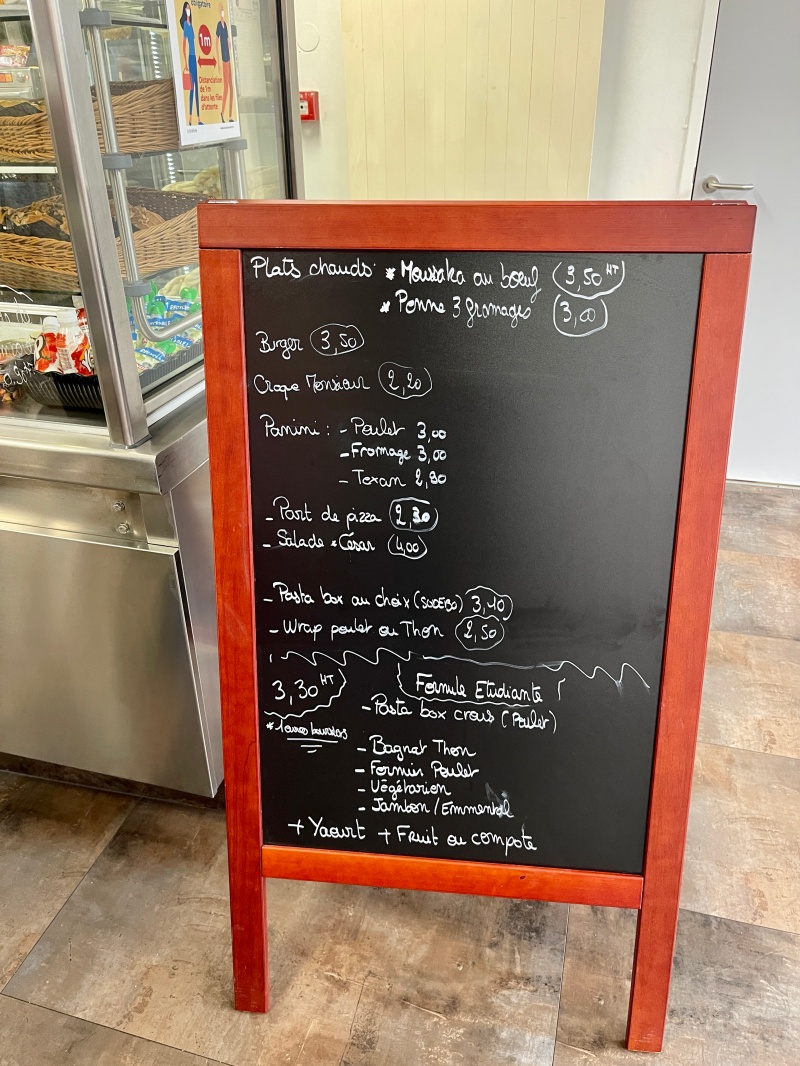 obligatoire
1m
Distanciation
de 1m
dans les files
d'attente
Plats chauds: * Moussaka au boeuf 3,50 HT
* Penne 3 fromages 3,00
Burger 3,50
Croque Monsieur 2,20
Panini : - Poulet 3,00
- Fromage 3,00
- Texan 2,90
- Part de pizza 2,30
- Salade * César 4,00
- Pasta box au choix (SODEBO) 3,40
- Wrap poulet ou Thon 2,50
3,30 HT Formule Etudiante
- Pasta box crous (Poulet)
- Bagnat Thon
- Fermier Poulet
- Végétarien
- Jambon / Emmental
+ Yaourt + Fruit ou compote